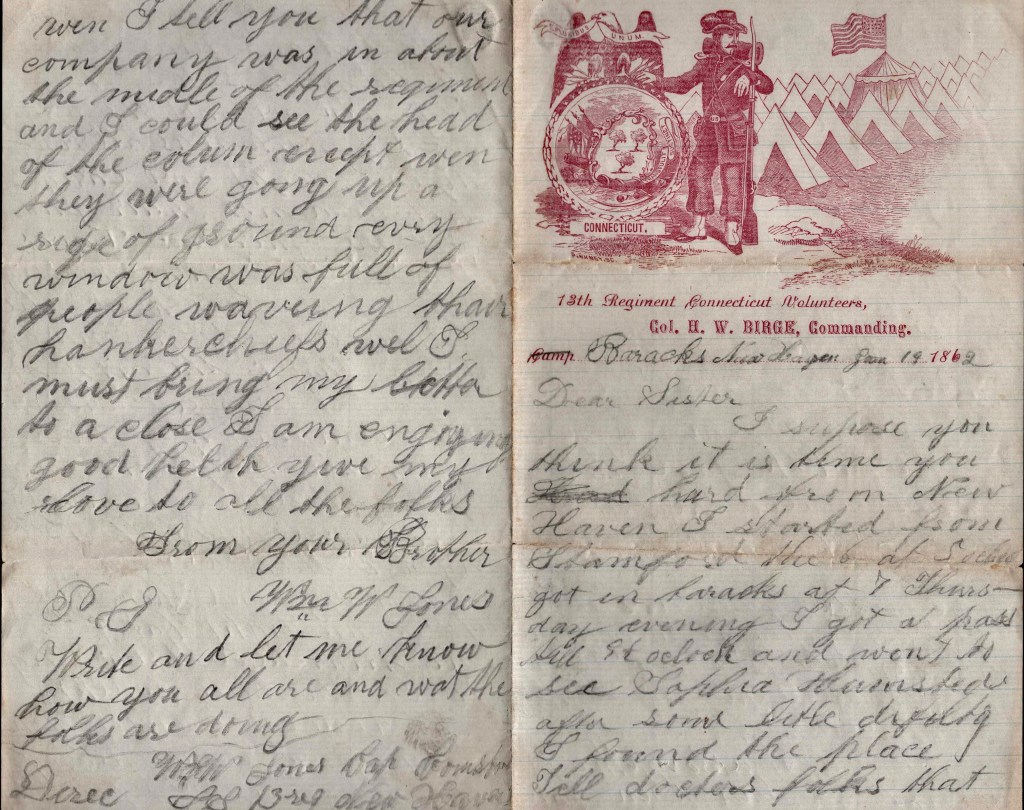 wen I tell you that our
company was in about
the midle of the regiment
and I could see the head
of the colum except wen
they were gong up a
rige of ground every
window was full of
people waveing thair
hankerchiefs wel I
must bring my letter
to a close I am engoying
good helth give my
love to all the folks
From your Brother
Wm W Jones
P S
Write and let me know
how you all are and wat the
folks are doing
W W Jones Cap
Direc 13 reg New Haven
UNUM
CONNECTICUT.
13th Regiment Connecticut Volunteers,
Col. H. W. BIRGE, Commanding.
Camp Baracks New Haven Jan 19 1862
Dear Sister
I supose you
think it is time you
hard from New
Haven I started from
Stamford the 6 at 5
got in baracks at 7 Thurs-
day evening I got a pass
till 9 oclock and went to
see Sophia
after some little
I found the place
Tell doctors folks that